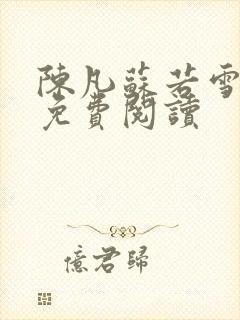 陳凡蘇若雪
免費閱讀
億君歸